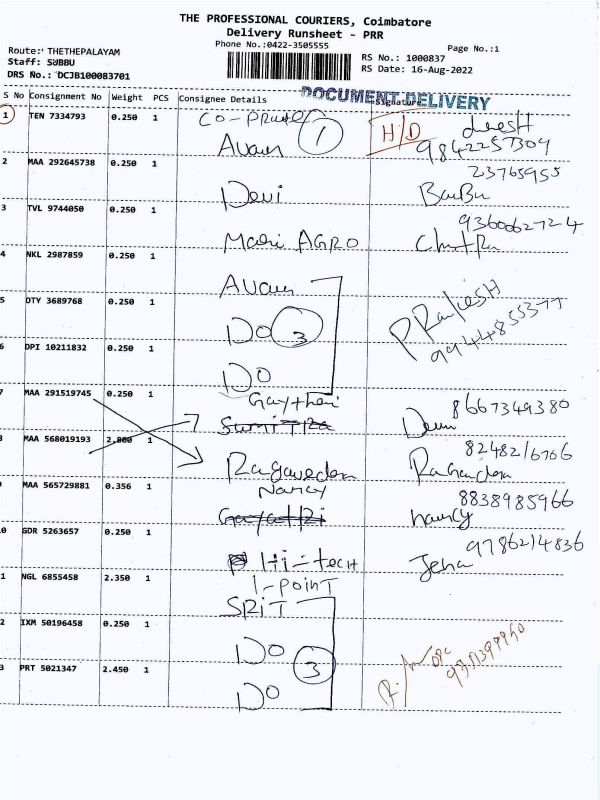 THE PROFESSIONAL COURIERS, Coimbatore
Delivery Runsheet - PRR
Phone No.:0422-3505555
Page No.:1
Route: THETHEPALAYAM
Staff: SUBBU
DRS No.: DCJB100083701
RS No.: 1000837
RS Date: 16-Aug-2022
DOCUMENT DELIVERY
S No Consignment No Weight PCS Consignee Details Signature
1 TEN 7334793 0.250 1 Co-
1 H/D
9842257309
2 MAA 292645738 0.250 1 Devi 23765955
Babu
3 TVL 9744050 0.250 1 Mari AGRO 9360062724
4 NKL 2987859 0.250 1
5 OTY 3689768 0.250 1 Do 3 9944855377
6 DPI 10211832 0.250 1 Do
7 MAA 291519745 0.250 1 Gaythri 8667349380
8 MAA 568019193 2.800 1 8248216706
9 MAA 565729881 0.356 1 Nancy 8838985966
Nancy
0 GDR 5263657 0.250 1 Hi-tech 9786214836
1-Point
1 NGL 6855458 2.350 1 SRIT
2 IXM 50196458 0.250 1 Do 3
3 PRT 5021347 2.450 1 Do